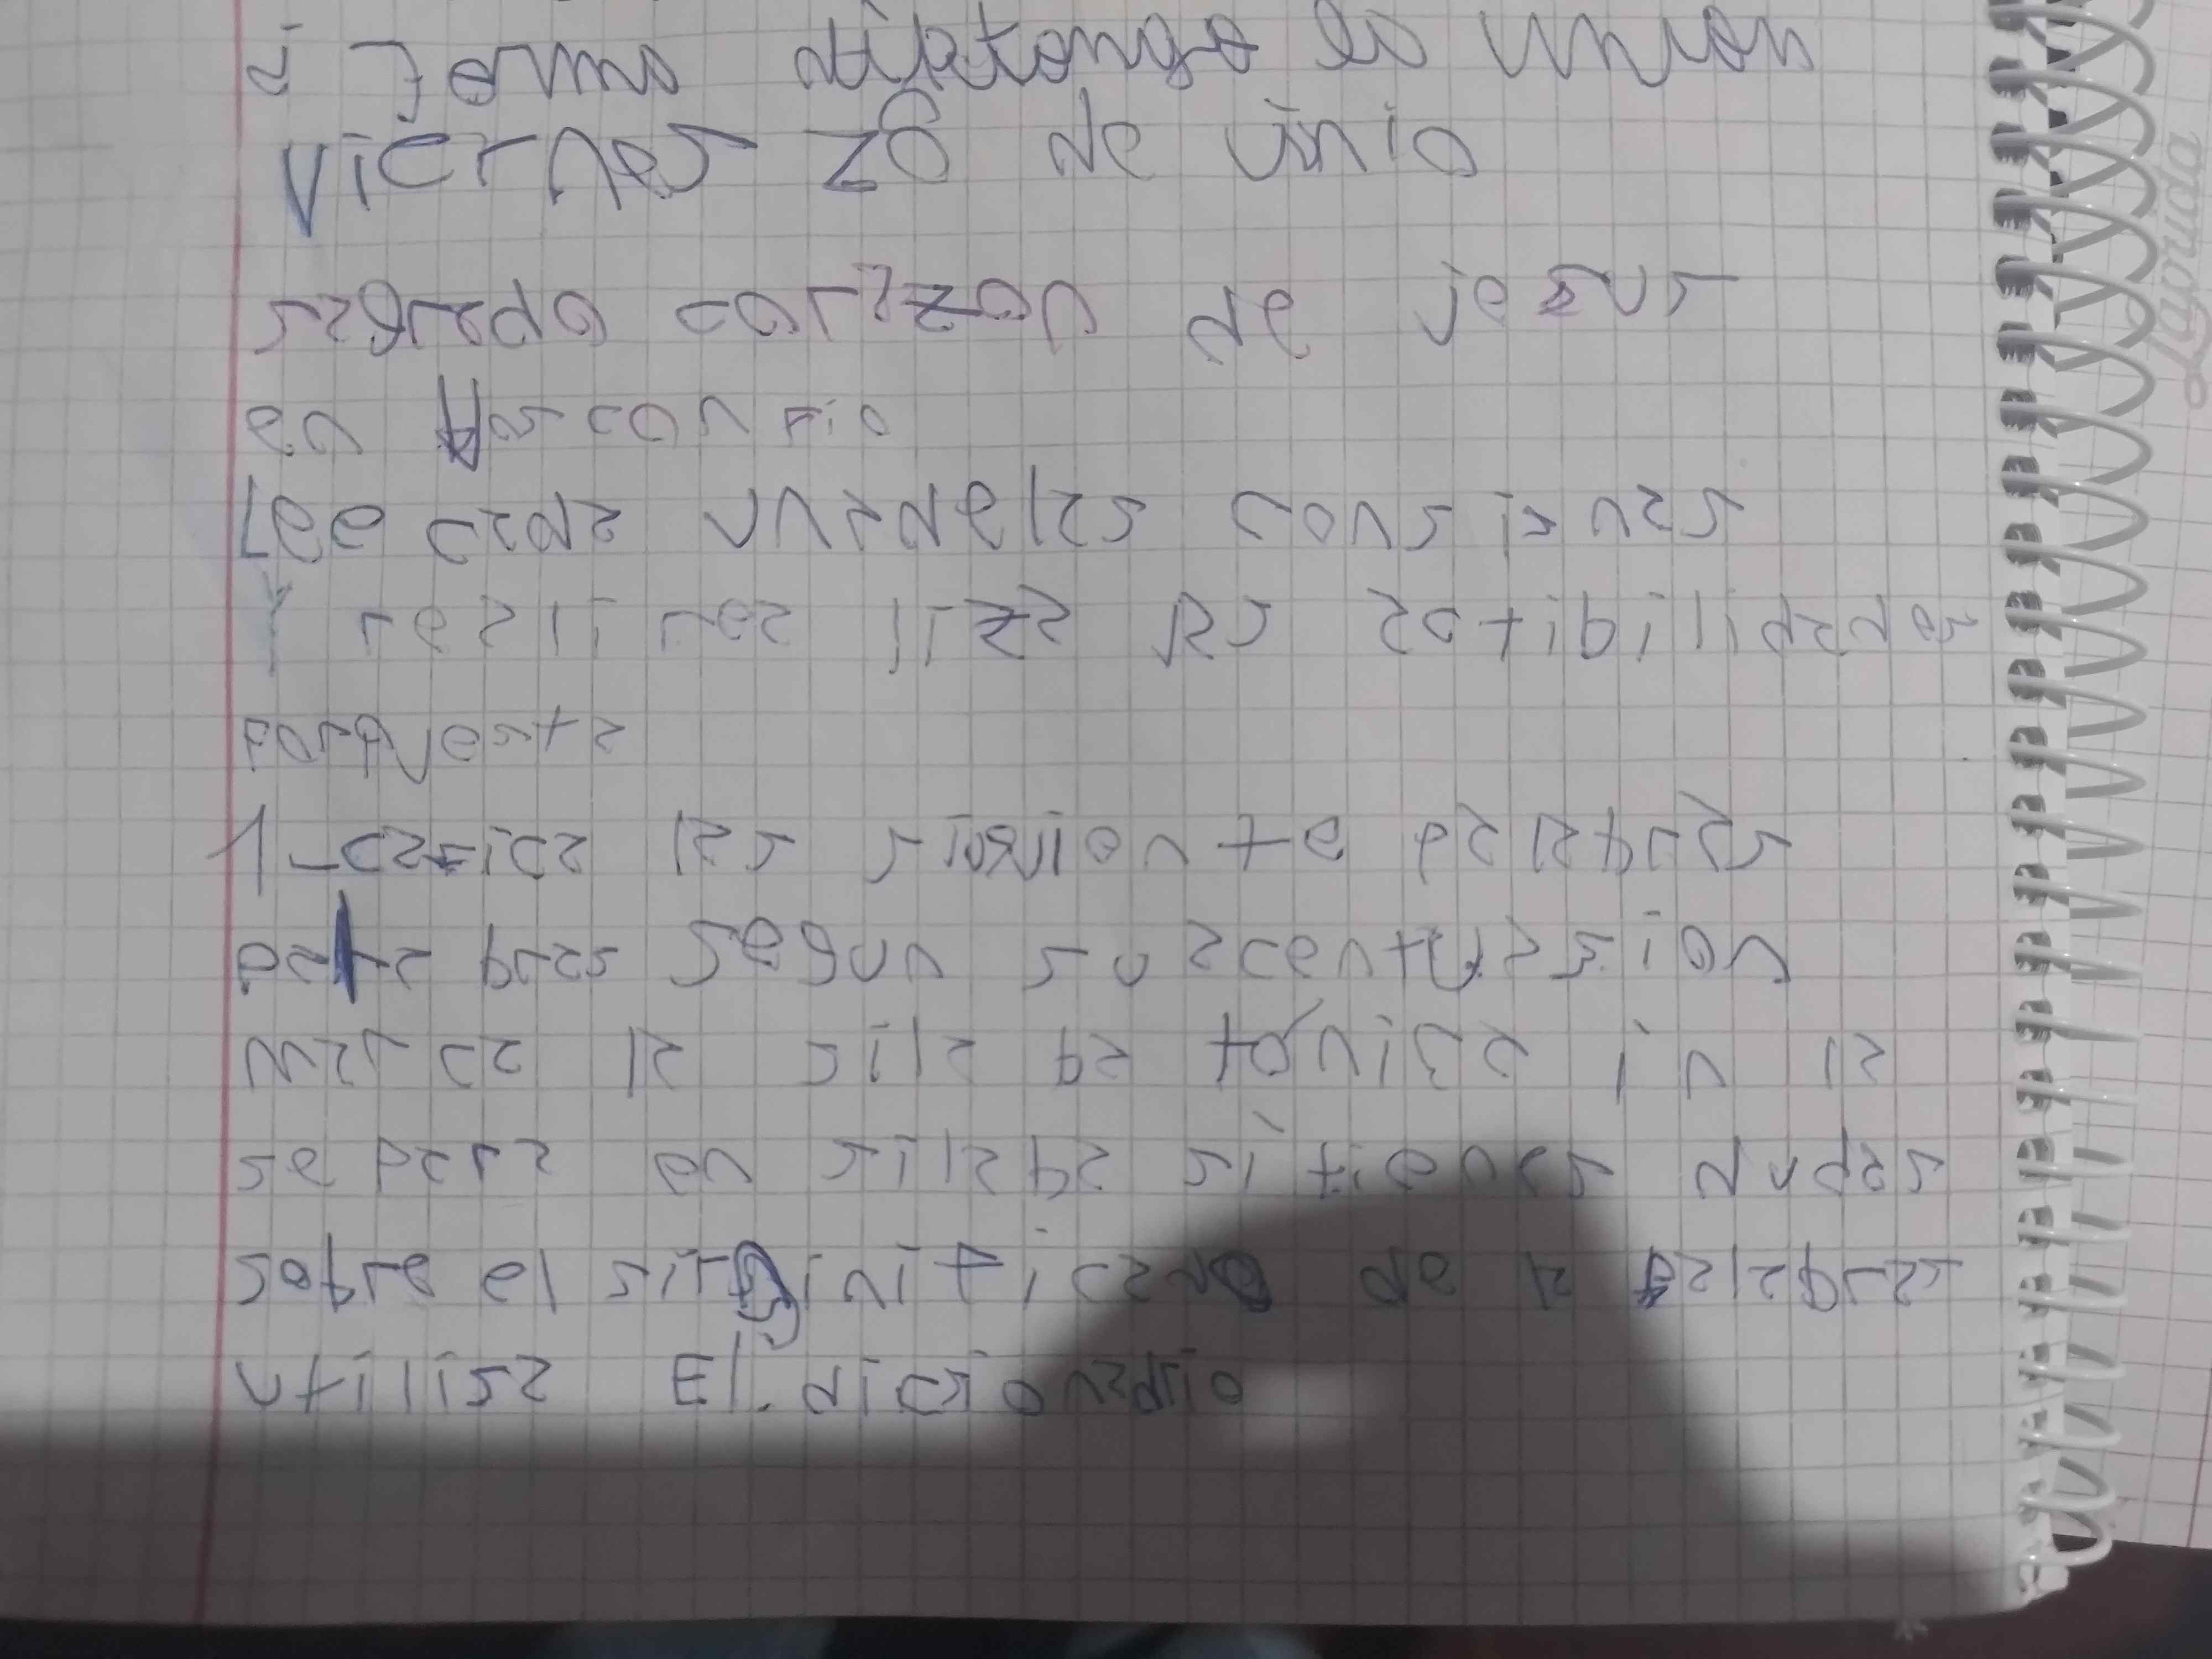 i forma diptongo lo union
viernes 28 de unio
sagrado corazon de jesus
en Asconsio
Lee cada una de las consisnas
y realirea liza
porquesta
1-casica las siguionte palabras
segun su asentuasion
marca la silaba tónica i n la
separa en silaba si tienes dudas
sobre el significado de la palabra
utilisa El dicsionadio
Laprida